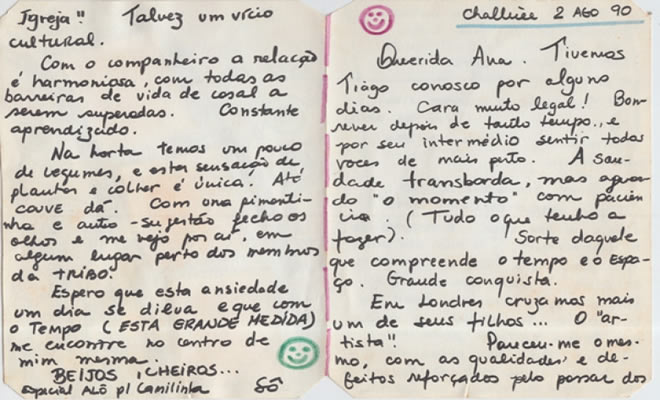 Challuée 2 AGO 90
Querida Ana. Tivemos
Tiago conosco por alguns
dias. Cara muito legal! Bom
rever depois de tanto tempo, e
por seu intermédio sentir todas
voces de mais perto. A sau-
dade transborda, mas aguar
do "o momento" com paciên
cia. (Tudo o que tenho a
fazer). Sorte daquele
que compreende o tempo e o Espa-
ço. Grande conquista.
Em Londres cruzamos mais
um de seus filhos... O "ar-
tista"! Pareceu-me o mes-
mo, com as qualidades e de-
feitos reforçados pelo passar dos
Igreja!! Talvez um vício
cultural.
Com o companheiro a relação
é harmoniosa, com todas as
barreiras de vida de casal a
serem superadas. Constante
aprendizado.
Na horta temos um pouco
de legumes, e esta sensação de
plantar e colher é única. Até
couve dá. Com uma pimenti-
nha e auto-sugestão fecho os
olhos e me vejo por aí, em
algum lugar perto dos membros
da TRIBO.
Espero que esta ansiedade
um dia se dilua e que com
o Tempo (ESTA GRANDE MEDIDA)
me encontre no centro de
mim mesma.
BEIJOS, CHEIROS...
Especial Alô p/ Camilinha Sô